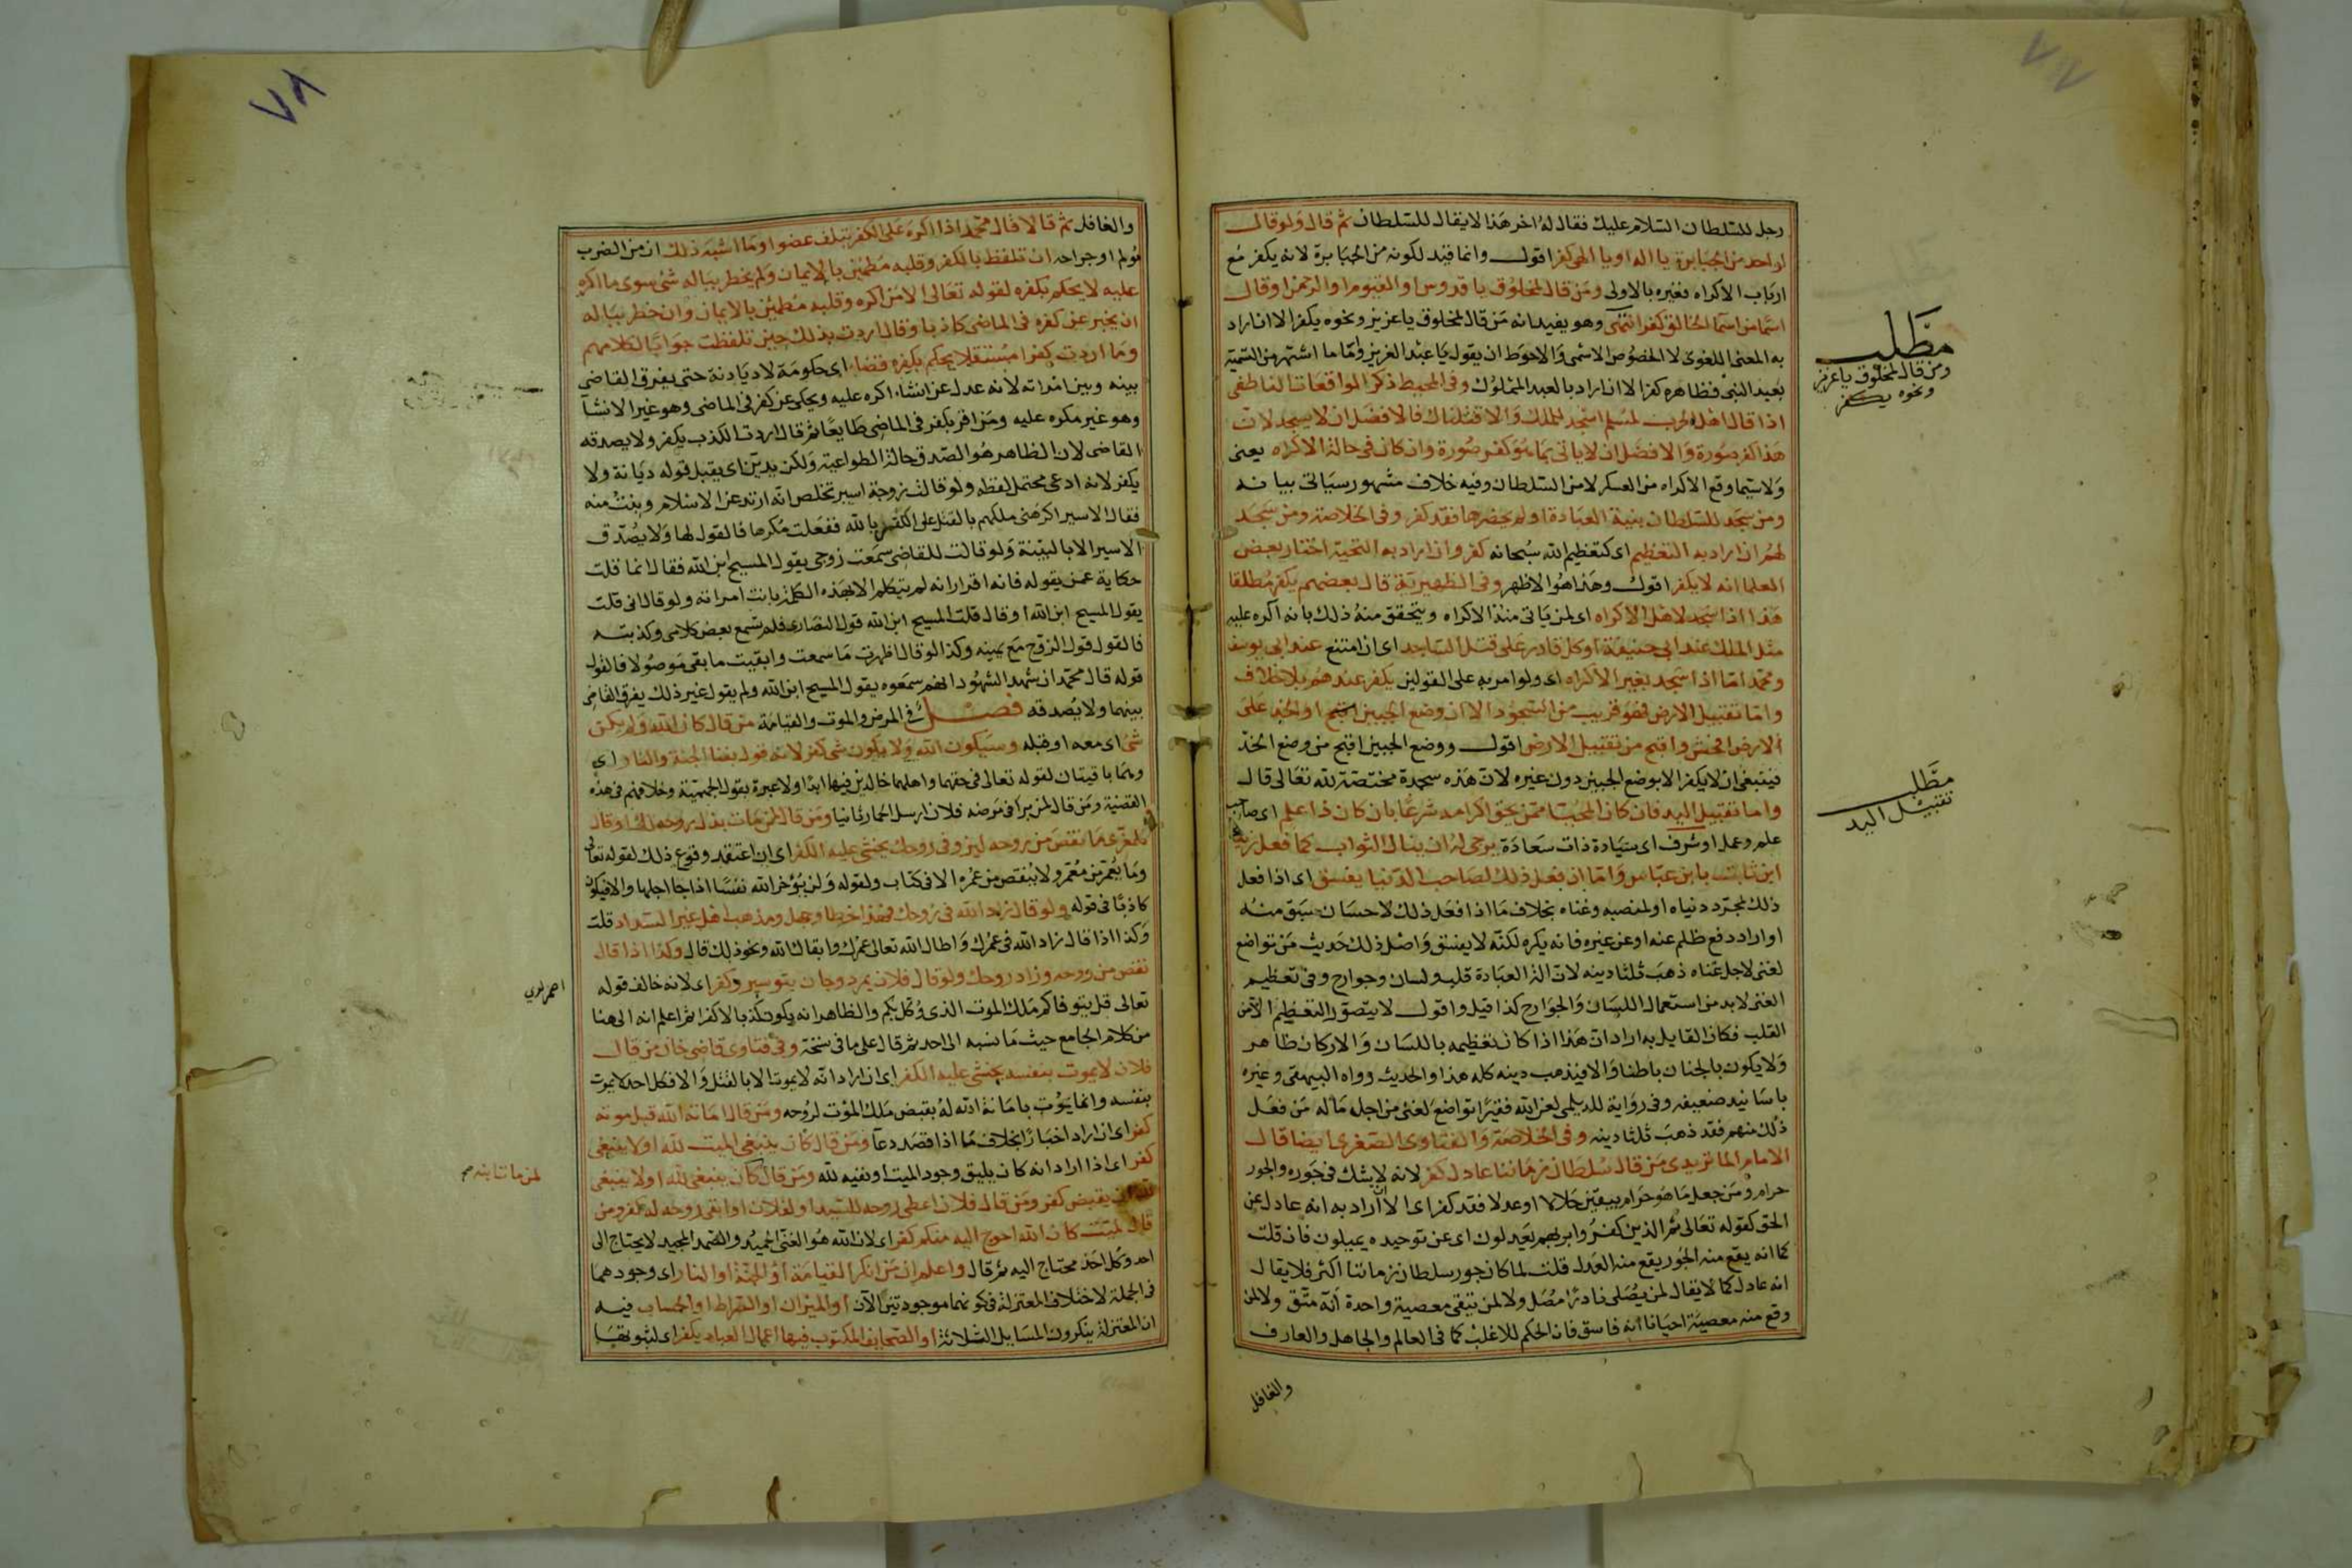 رجل للسلطان السلام عليك فقال له اخر هذا لا يقال للسلطان ثم قال ولو قال
لواحد من الجبابرة يا اله او يا الهي كفر اقول وانما قيد لكونه من الجبابرة لانه يكفر مع
ارباب الاكراه فغيره بالاولى ومن قال لمخلوق يا قدوس او القيوم او الرحمن او قال
اسما من اسما الخالق كفر انتهى وهو يفيد انه من قال لمخلوق يا عزيز ونحوه يكفر الا ان اراد
به المعنى اللغوى لا الخصوص الاسمى والاحوط ان يقول يا عبد العزيز واما ما اشتهر من التسمية
بعبد النبى فظاهره كفر الا ان اراد بالعبد المملوك وفى المحيط ذكر فى الواقعات الناطفى
اذا قال اهل الحرب لمسلم اسجد للملك والا قتلناك فالافضل ان لا يسجد لان
هذا كفر صورة والافضل ان لا ياتى بما هو كفر صورة وان كان فى حالة الاكراه يعنى
ولا سيما وقع الاكراه من العسكر لا من السلطان وفيه خلاف مشهور سياتى بيانه
ومن سجد للسلطان بنية العبادة او لم يحضرها فقد كفر وفى الخلاصة ومن سجد
لهم ان اراد به التعظيم اى كتعظيم الله سبحانه كفر وان اراد به التحية اختار بعض
العلما انه لا يكفر اقول وهذا هو الاظهر وفى الظهيرية قال بعضهم يكفر مطلقا
هذا اذا سجد لاهل الاكراه اى لمن ياتى منه الاكراه ويتحقق منه ذلك بانه اكره عليه
مثل الملك عند ابى حنيفة او كل قادر على قتل الساجد اى ان امتنع عند ابى يوسف
ومحمد اما اذا سجد بغير الاكراه اى ولو امر به على القولين يكفر عندهم بلا خلاف
واما تقبيل الارض فهو قريب من السجود الا ان وضع الجبين اقبح او الخد على
الارض افحش واقبح من تقبيل الارض اقول ووضع الجبين اقبح من وضع الخد
فينبغى ان لا يكفر الا بوضع الجبين دون غيره لان هذه سجدة مختصة لله تعالى قال
واما تقبيل اليد فان كان المحيا ممن يحق اكرامه شرعا بان كان ذا علم اى صاحب
علم وعمل او شرف اى سيادة ذات سعادة يرجى له ان ينال الثواب كما فعل زيد
ابن ثابت بابن عباس واما ان فعل ذلك لصاحب الدنيا يفسق اى اذا فعل
ذلك لمجرد دنياه او لمنصبه وغناه بخلاف ما اذا فعل ذلك لاحسان سبق منه
او اراد دفع ظلم عنه او عن غيره فانه يكره لكنه لا يفسق واصل ذلك حديث من تواضع
لغنى لاجل غناه ذهب ثلثا دينه لان الة العبادة قلب ولسان وجوارح وفى تعظيم
الغنى لا بد من استعمال اللسان والجوارح كذا قيل واقول لا يتصور التعظيم الا من
القلب فكان القايل به اراد ان هذا اذا كان تعظيمه باللسان والاركان ظاهر
ولا يكون بالجنان باطنا والا فيذهب دينه كله هذا والحديث رواه البيهقى وغيره
باسانيد ضعيفه وفى رواية للديلمى لعن الله فقيرا تواضع لغنى من اجل ماله من فعل
ذلك منهم فقد ذهب ثلثا دينه وفى الخلاصة والفتاوى الصغرى ايضا قال
الامام الماتريدى من قال لسلطان زماننا عادل كفر لانه لا يشك فى جوره والجور
حرام ومن جعل ما هو حرام بيقين حلالا او عدلا فقد كفر اى الا ان اراد به انه عادل عن
الحق كقوله تعالى ثم الذين كفروا بربهم يعدلون اى عن توحيده يميلون فان قلت
كما انه يقع منه الجور يقع منه العدل قلت لما كان جور سلطان زماننا اكثر فلا يقال
انه عادل كما لا يقال لمن يصلى نادرا مصل ولا لمن تبقى معصية واحدة انه متق ولا لمن
وقع منه معصية احيانا انه فاسق فان الحكم للاغلب كما فى العالم والجاهل والعارف
والغافل
مطلب
ومن قال لمخلوق يا عزيز
ونحوه يكفر
مطلب
تقبيل اليد
٧٨
والغافل ثم قال الا قال محمد اذا اكره على الكفر بتلف عضو او ما اشبه ذلك ان من الضرب
مولم او جراحه ان تلفظ بالكفر وقلبه مطمئن بالايمان ولم يخطر بباله شئ سوى ما اكره
عليه لا يحكم بكفره لقوله تعالى الا من اكره وقلبه مطمئن بالايمان وان خطر بباله
ان يخبر عن كفره فى الماضى كاذبا وقال اردت بذلك حين تلفظت جوابا لكلامهم
وما اردت كفرا مستقبلا يحكم بكفره قضاء اى حكومة لا ديانة حتى يفرق القاضى
بينه وبين امراته لانه عدل عن انشاء اكره عليه ويحكى عن كفر فى الماضى وهو غير الانشا
وهو غير مكره عليه ومن اقر بكفر فى الماضى طايعا ثم قال اردت الكذب يكفر ولا يصدقه
القاضى لان الظاهر هو الصدق حالة الطواعية ولكن يدين اى يقبل قوله ديانة ولا
يكفر لانه ادعى محتمل لفظه ولو قالت زوجة اسير تخلص انه ارتد عن الاسلام وبنت منه
فقال الاسير اكرهنى ملكهم بالقتل على الكفر بالله ففعلت مكرها فالقول لها ولا يصدق
الاسير الا بالبينة ولو قالت للقاضى سمعت زوجى يقول المسيح ابن الله فقال انما قلت
حكاية عمن يقوله فانه اقر انه لم يتكلم الا بهذه الكلمة بانت امراته ولو قال انى قلت
يقول المسيح ابن الله او قال قلت المسيح ابن الله قول النصارى فلم تسمع بعض كلامى وكذبته
فالقول قول الزوج مع يمينه وكذا لو قال اظهرت ما سمعت وابقيت ما بقى موصولا فالقول
قوله قال محمد ان شهد الشهود انهم سمعوه يقول المسيح ابن الله ولم يقول غير ذلك يفرق القاضى
بينهما ولا يصدقه فصل فى المرض والموت والقيامة من قال كان الله ولم يكن
شئ اى معه او قبله وسيكون الله ولا يكون شى كفر لانه قول بفنا الجنة والنار اى
وهما باقيتان لقوله تعالى فى حقهما واهلهما خالدين فيها ابدا ولا عبرة بقول الجهمية وخلافهم فى هذه
القضية ومن قال لمن برا فى مرضه فلان ارسل الحمار ثانيا ومن قال لمن مات بذل روحه لك او قال
للمعزى ما نقص من روحه ليزد فى روحك يخشى عليه الكفر اى ان اعتقد وقوع ذلك لقوله تعالى
وما يعمر من معمر ولا ينقص من عمره الا فى كتاب ولقوله ولن يؤخر الله نفسا اذا جا اجلها والا فيكون
كاذبا فى قوله ولو قال زاد الله فى روحك فهذا خطا وجهل ومذهب اهل غير السداد قلت
وكذا اذا قال زاد الله فى عمرك واطال الله تعالى عمرك وابقاك الله ونحو ذلك قال وكذا اذا قال
نقص من روحه وزاد روحك ولو قال فلان بمرد وجان بتو سپرد كفر اى لانه خالف قوله
تعالى قل يتوفاكم ملك الموت الذى وكل بكم والظاهر انه يكون كذبا لا كفرا ثم اعلم انه الى هنا
من كلام الجامع حيث ما نسبه الى احد ثم قال على ما فى نسخة وفى فتاوى قاضى خان من قال
فلان لا يموت بنفسه يخشى عليه الكفر اى ان اراد انه لا يموت الا بالقتل والا فكل احد لا يموت
بنفسه وانما يموت بامانة الله له بقبض ملك الموت لروحه ومن قال اماته الله قبل موته
كفر اى ان اراد اخبارا بخلاف ما اذا قصد دعا ومن قال كان ينبغى الميت لله او لا ينبغى
كفر اى اذا اراد انه كان يليق وجود الميت او نفيه لله ومن قال كان ينبغى لله او لا ينبغى
لله ان يقبض كفر ومن قال فلان اعطى روحه للسيد او لفلان او ابقى روحه له كفر ومن
قال لميت كان الله احوج اليه منكم كفر اى لان الله هو الغنى الحميد والصمد المجيد لا يحتاج الى
احد وكل احد محتاج اليه ثم قال واعلم ان من انكر القيامة او الجنة او النار اى وجودهما
فى الجملة لاختلاف المعتزلة فى كونهما موجودتين الآن او الميزان او الصراط او الحساب فيه
ان المعتزلة ينكرون المسايل الثلاثة او الصحايف المكتوب فيها اعمال العباد يكفر اى لثبوتها
لمن مات ابنه صح